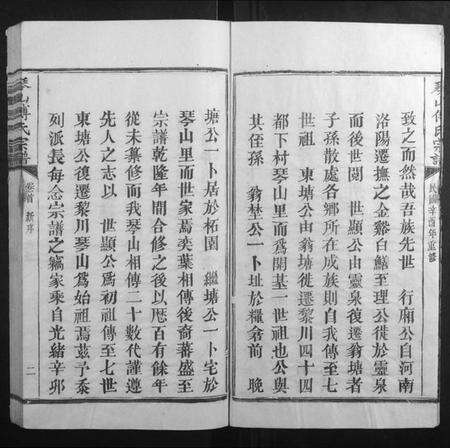 致之而然哉吾族先世　行廟公自河南
洛陽遷撫之金谿白鱔至理公徙於靈泉
而後世閱　世顯公由靈泉復遷翁塘者
子孫散處各鄉所在成族則自我傳至七
世祖　東塘公由翁塘徙遷黎川四十四
都下村琴山里而爲開基一世祖也公與
其侄孫　翁埜公一卜址於糧倉前　晚
民國辛酉年重修
琴山傅氏宗譜
塘公一卜居於柘園　繼塘公一卜宅於
琴山里而世家焉奕葉相傳後裔蕃盛至
宗譜乾隆年間合修之後以歷百有餘年
從未纂修而我琴山相傳二十數代謹遵
先人之志以　世顯公爲初祖傳至七世
東塘公復遷黎川琴山爲始祖焉茲予忝
列派長每念宗譜之竊家乘自光緒辛卯
琴山傅氏宗譜
卷首　新序
二